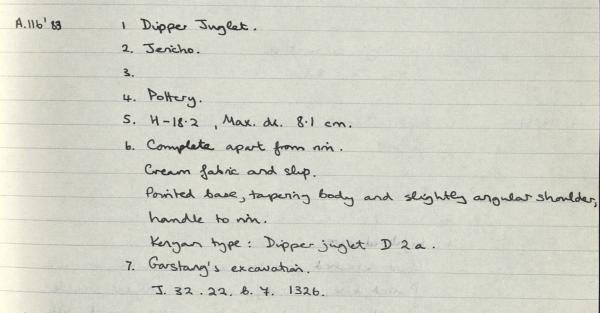 A.116'83 1 Dipper Juglet.
2. Jericho.
3.
4. Pottery.
5. H-18.2, Max. di. 8.1 cm.
6. Complete apart from rim.
Cream fabric and slip.
Pointed base, tapering body and slightly angular shoulder,
handle to rim.
Kenyan type: Dipper juglet D 2 a.
7. Garstang's excavation.
J. 32. 22. 6. 7. 1326.